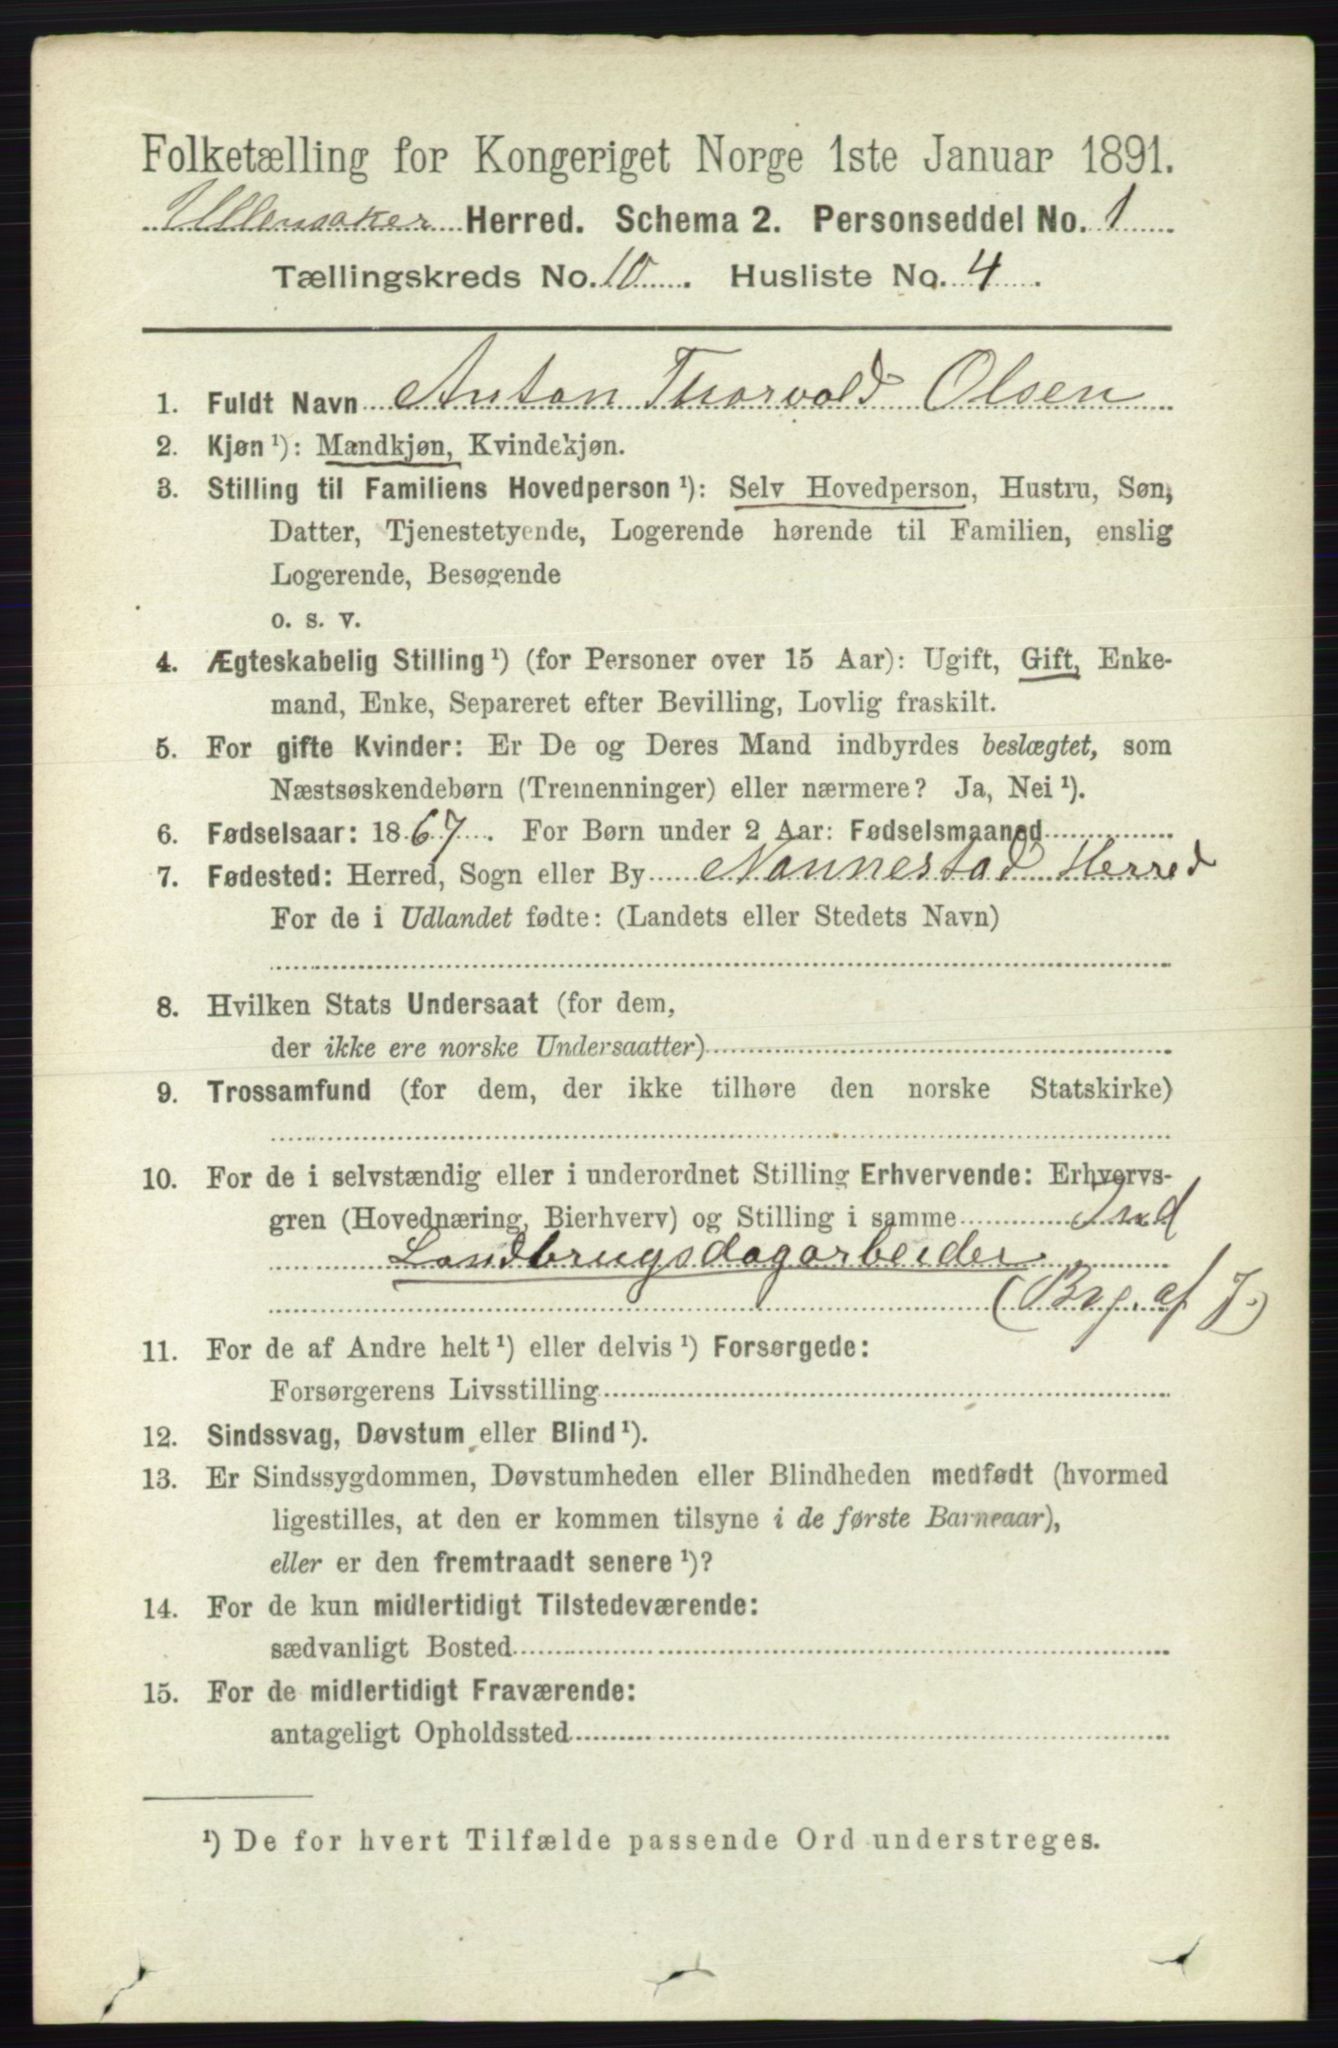 Folketælling for Kongeriget Norge 1ste Januar 1891.
Ullensaker Herred. Schema 2. Personseddel No. 1
Tællingskreds No. 10. Husliste No. 4.
1. Fuldt Navn Anton Thorvald Olsen
2. Kjøn ¹): Mandkjøn, Kvindekjøn.
3. Stilling til Familiens Hovedperson ¹): Selv Hovedperson, Hustru, Søn,
Datter, Tjenestetyende, Logerende hørende til Familien, enslig
Logerende, Besøgende
o. s. v.
4. Ægteskabelig Stilling ¹) (for Personer over 15 Aar): Ugift, Gift, Enke-
mand, Enke, Separeret efter Bevilling, Lovlig fraskilt.
5. For gifte Kvinder: Er De og Deres Mand indbyrdes beslægtet, som
Næstsøskendebørn (Tremenninger) eller nærmere? Ja, Nei ¹).
6. Fødselsaar: 1867. For Børn under 2 Aar: Fødselsmaaned
7. Fødested: Herred, Sogn eller By Nannestad Herred
For de i Udlandet fødte: (Landets eller Stedets Navn)
8. Hvilken Stats Undersaat (for dem,
der ikke ere norske Undersaatter)
9. Trossamfund (for dem, der ikke tilhøre den norske Statskirke)
10. For de i selvstændig eller i underordnet Stilling Erhvervende: Erhvervs-
gren (Hovednæring, Bierhverv) og Stilling i samme Ind
Landbrugsdagarbeider.
(Brg. af J.)
11. For de af Andre helt ¹) eller delvis ¹) Forsørgede:
Forsørgerens Livsstilling
12. Sindssvag, Døvstum eller Blind ¹).
13. Er Sindssygdommen, Døvstumheden eller Blindheden medfødt (hvormed
ligestilles, at den er kommen tilsyne i de første Barneaar),
eller er den fremtraadt senere ¹)?
14. For de kun midlertidigt Tilstedeværende:
sædvanligt Bosted
15. For de midlertidigt Fraværende:
antageligt Opholdssted
¹) De for hvert Tilfælde passende Ord understreges.